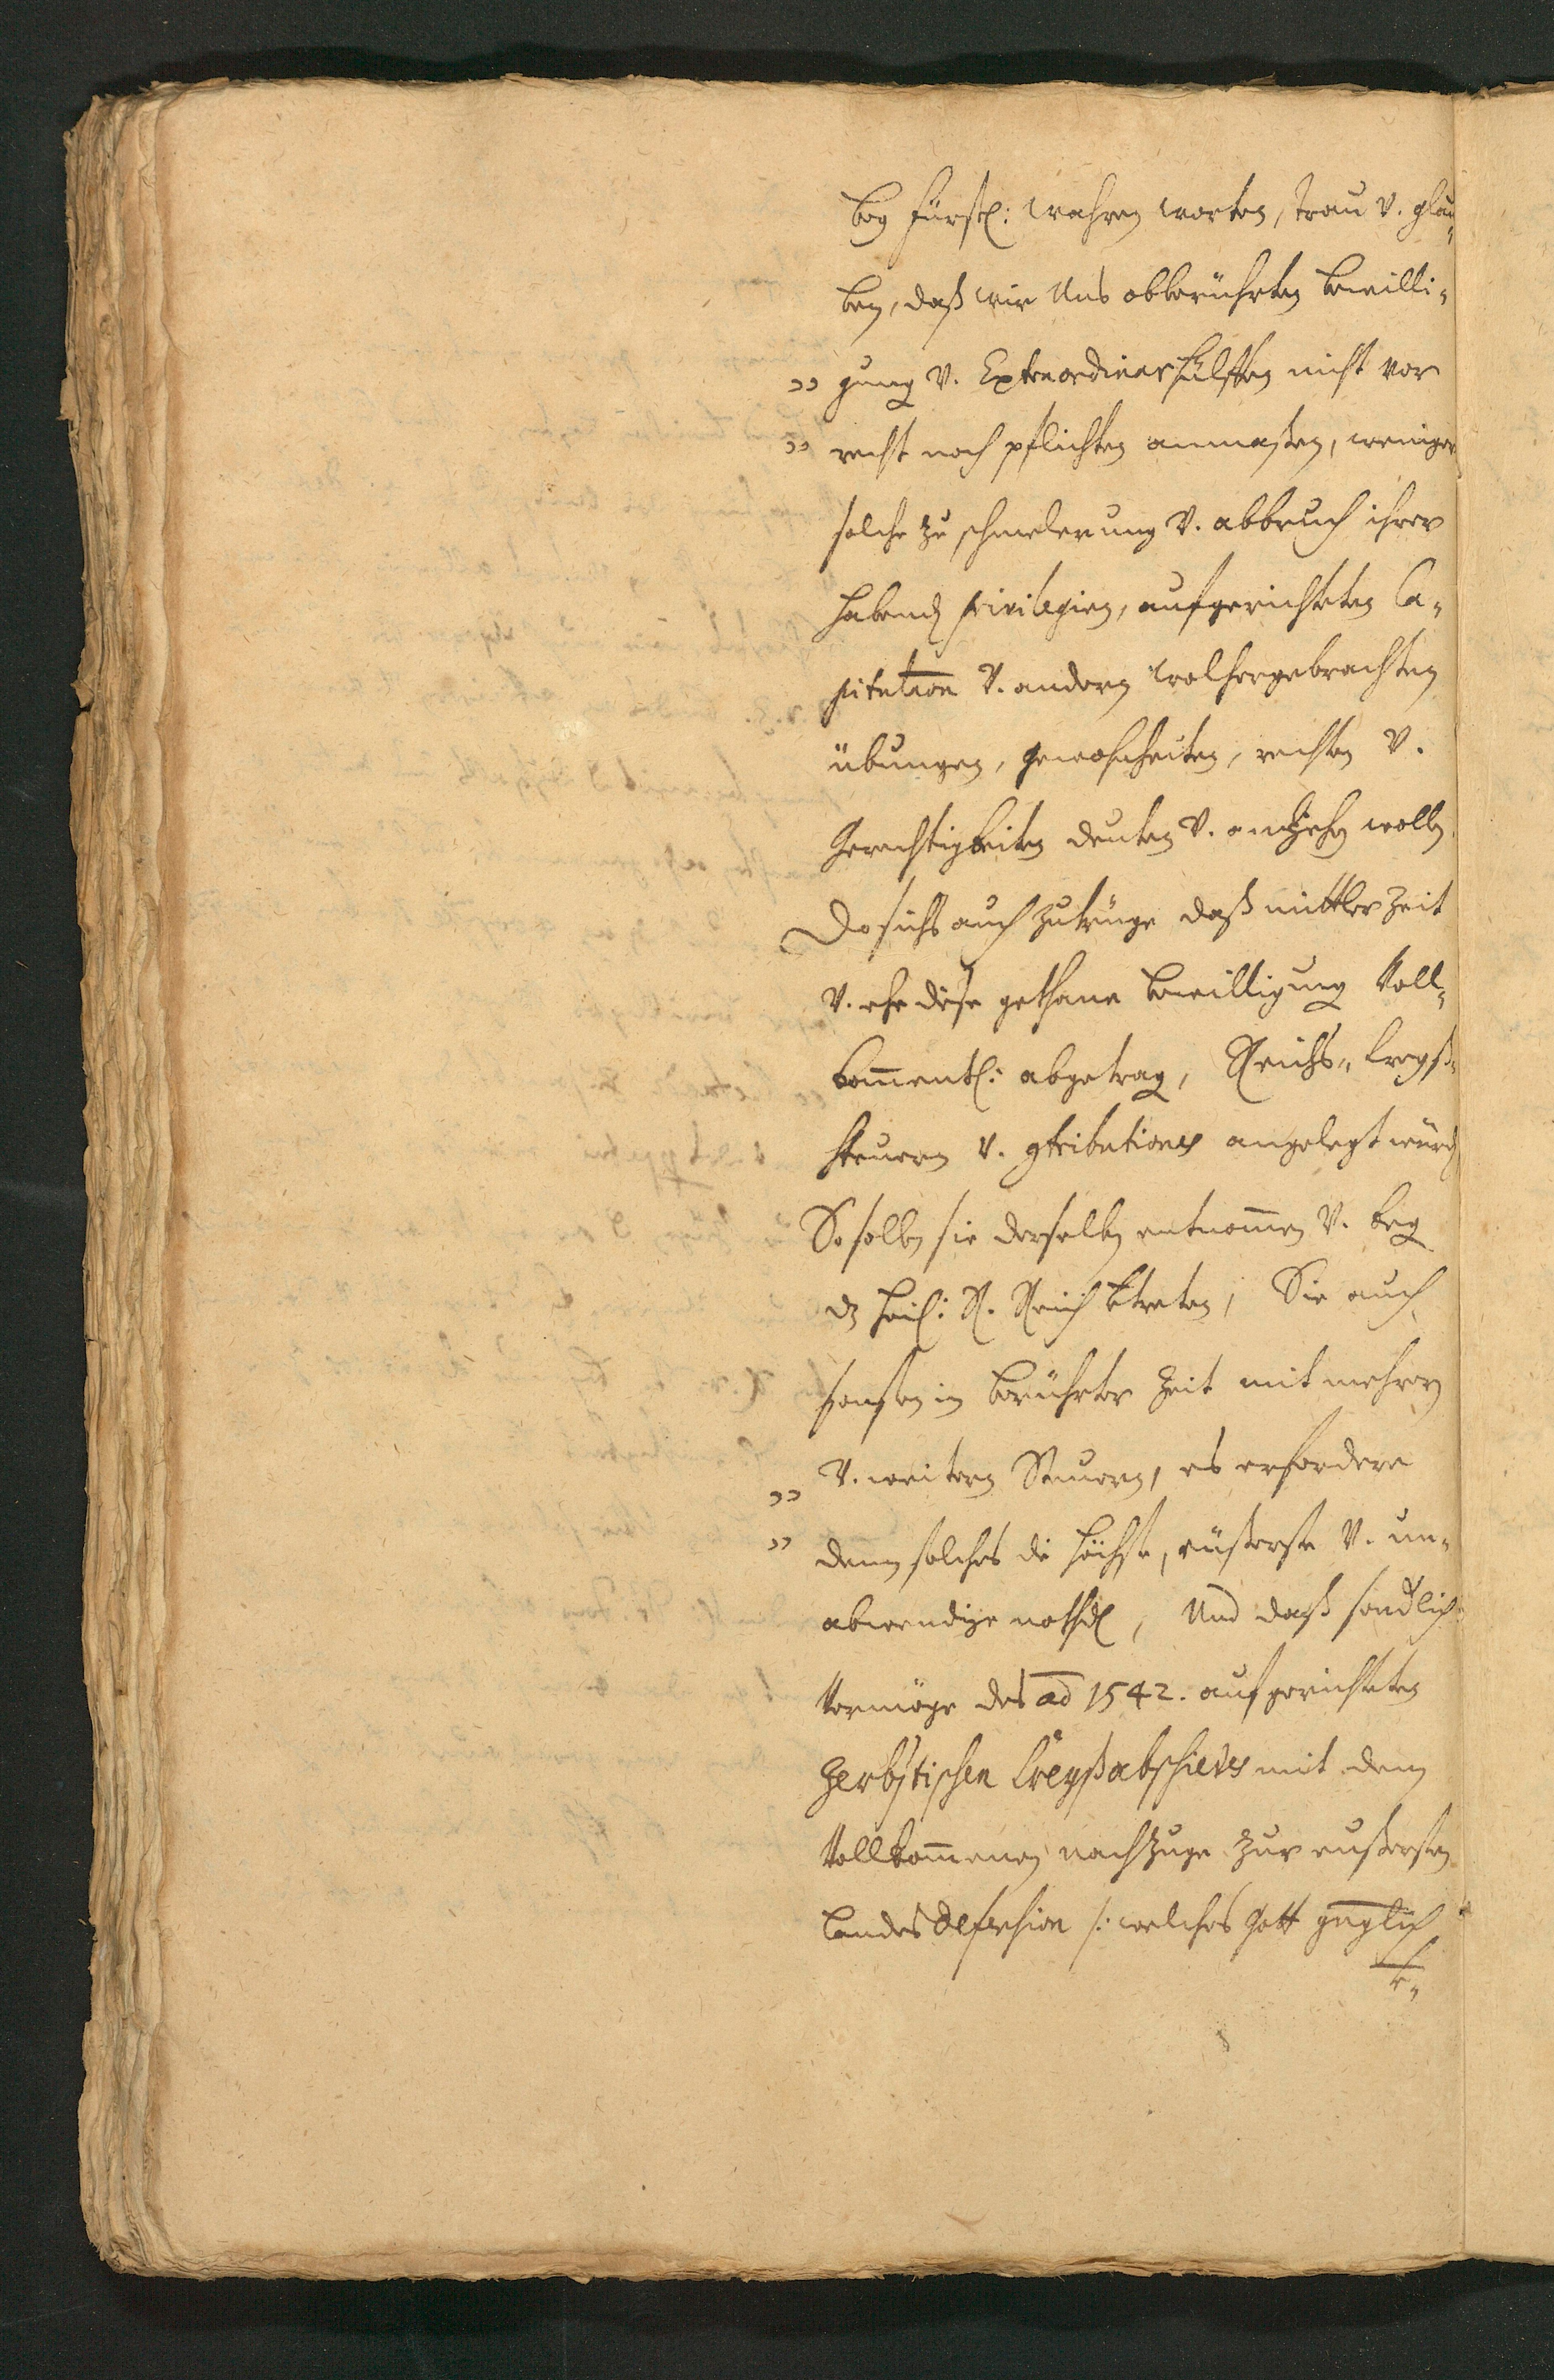 bey fürstl: wahren worten, trau v. glau„
ben, daß wir Uns obberührten bewilli„
„ gung v. Extraordinar hülffen nicht vor
„ recht noch pflichten anmaßen, weniger
solche zu schmelerung v. abbruch ihrer
habend privilegien, aufgerichteten Ca„
pitulation v. andern wolhergebrachten
übungen, gewohnheiten, rechten v.
Gerechtigkeiten deuten v. anziehen wollen
Da sichs auch zutrüge daß mittler Zeit
v. ehe diese gethane bewilligung Voll„
kommentl: abgetragen, Reichs„ Creyß„
steuern v. contributiones angelegt würden
So sollen sie derselben entnommen v. beg
das heil: R. Reich vertreten, Sie auch
sonsten in berührter Zeit mit mehren
„ v. weitern Steuern, es erfordere
„ denn solches die höchste, eußerste v. un„
abwendige nothd, Und daß sonderlich
Vermöge des ao 1542. aufgerichteten
Zerbstischen Creyßabschiedes mit dem
Vollkommenen nachzuge zur eußersten
Landesdefension /: welches Gott gneglich
v„